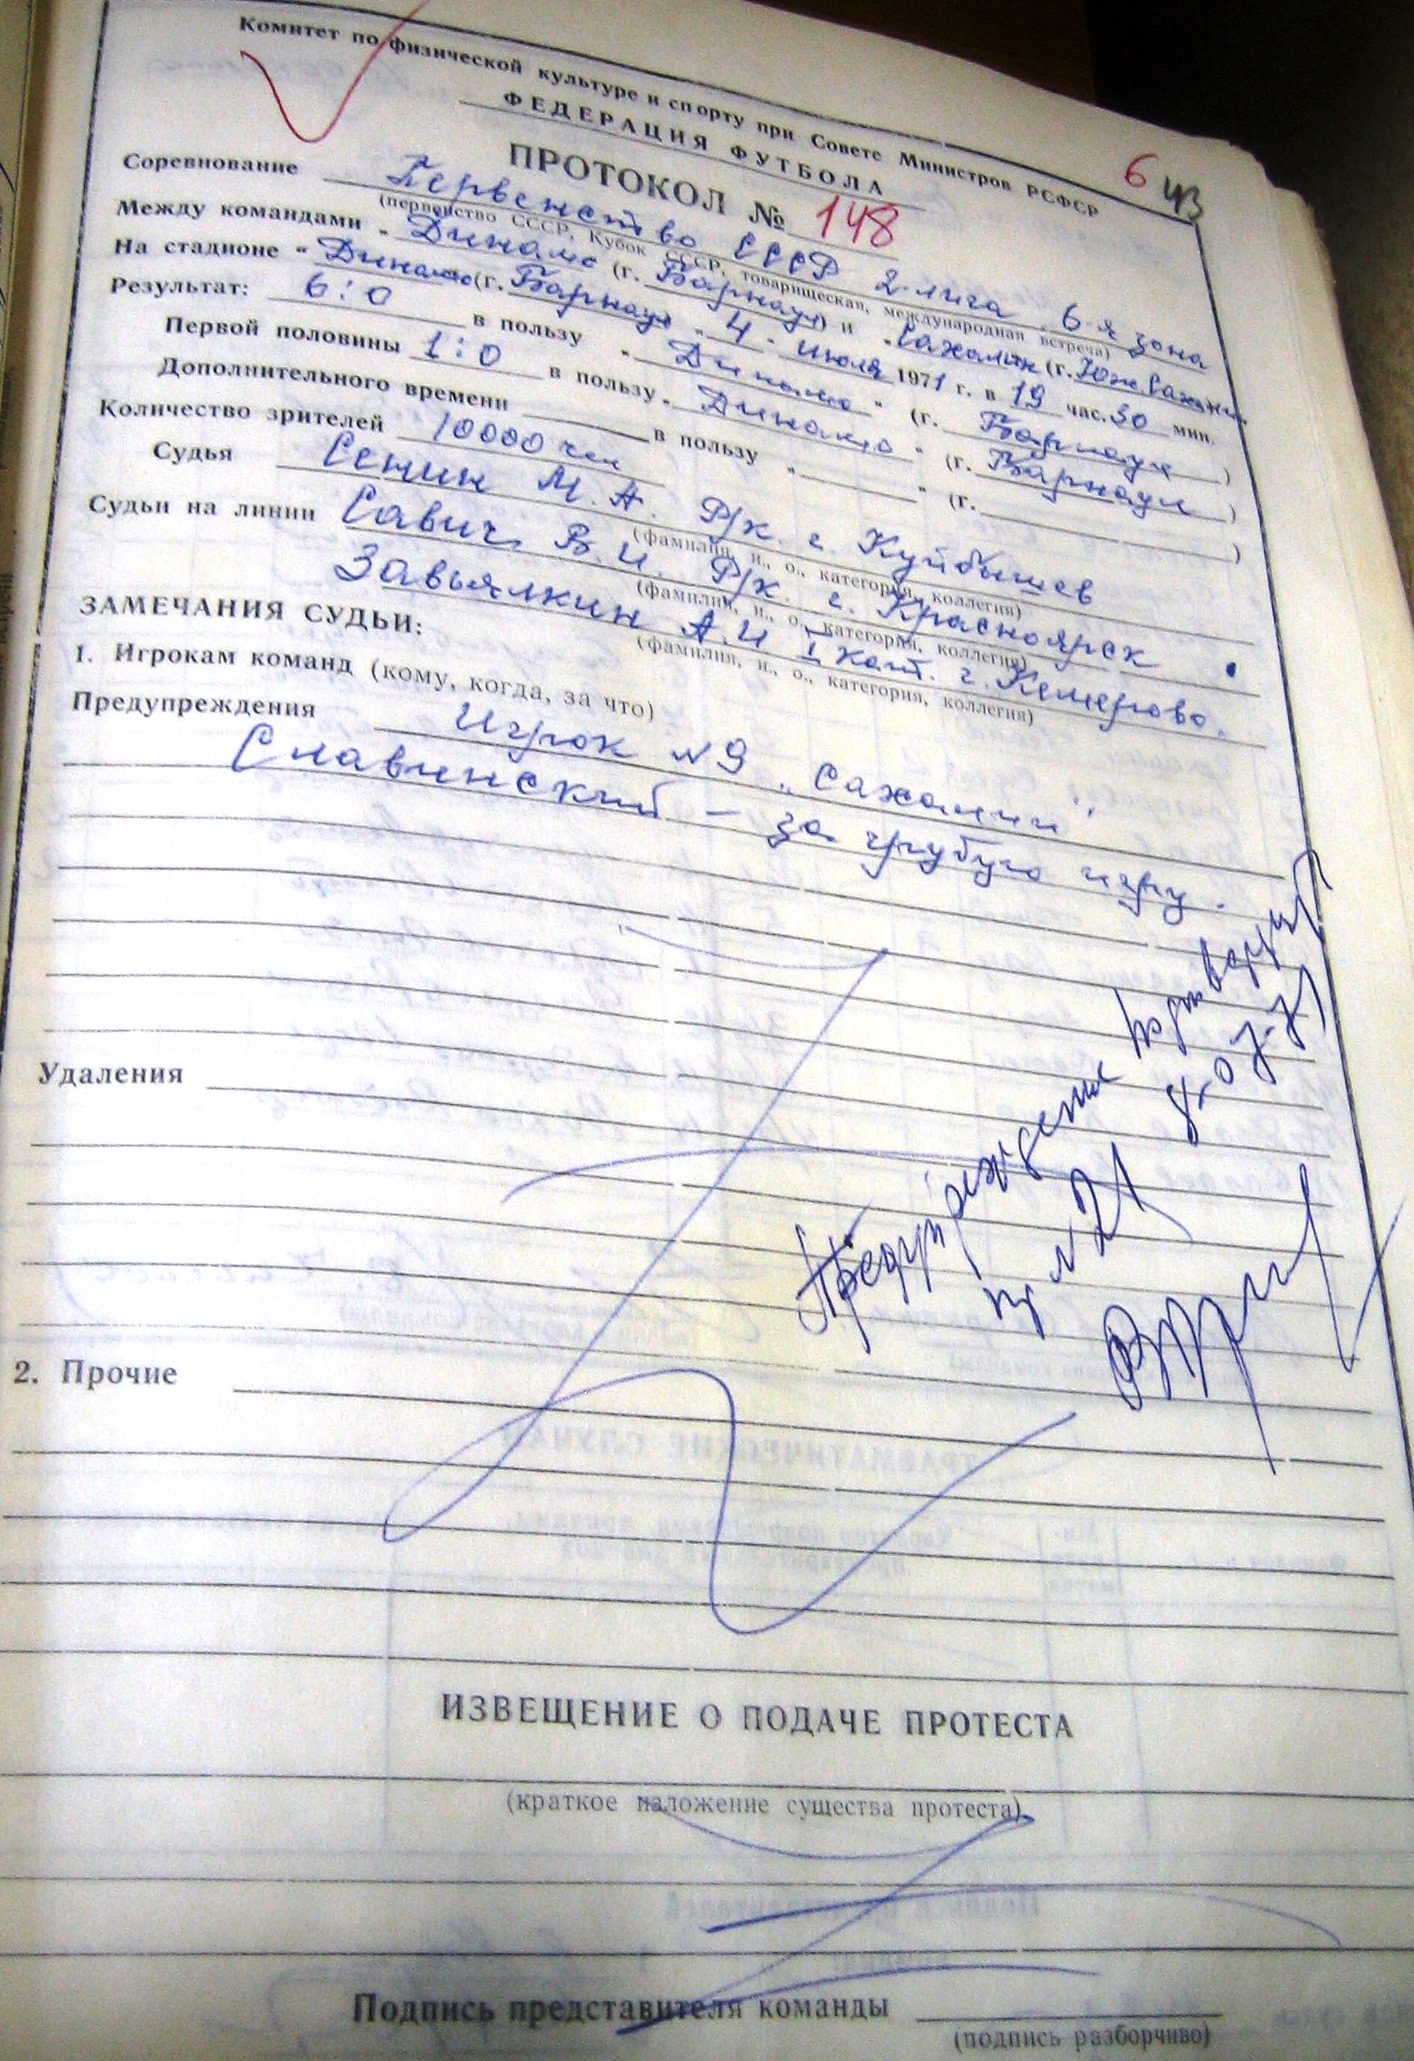 Комитет по физической культуре и спорту при Совете Министров РСФСР
ФЕДЕРАЦИЯ ФУТБОЛА
6 43
ПРОТОКОЛ № 148
Соревнование Первенство СССР 2 лига 6-я зона
(первенство СССР, Кубок СССР, товарищеская, международная встреча)
Между командами „Динамо (г. Барнаул) и „Сахалин (г. Юж. Сахалин.
На стадионе „Динамо (г. Барнаул „ 4 " июля 1971 г. в 19 час. 30 мин.
Результат: 6:0 в пользу „Динамо" (г. Барнаул)
Первой половины 1:0 в пользу „Динамо" (г. Барнаул)
Дополнительного времени в пользу „ " (г. )
Количество зрителей 10000 чел
Судья Сенин М. А. Р/к. г. Куйбышев
(фамилия, и., о., категория, коллегия)
Судьи на линии Савич В. И. Р/к. г. Красноярск
(фамилия, и., о., категория, коллегия)
Завьялкин А. И I кат. г. Кемерово.
(фамилия, и., о., категория, коллегия)
ЗАМЕЧАНИЯ СУДЬИ:
1. Игрокам команд (кому, когда, за что)
Предупреждения Игрок № 9 „Сахалин"
Славинский – за грубую игру.
Предупреждение
пр №21
Удаления
2. Прочие
ИЗВЕЩЕНИЕ О ПОДАЧЕ ПРОТЕСТА
(краткое изложение существа протеста)
Подпись представителя команды
(подпись разборчиво)